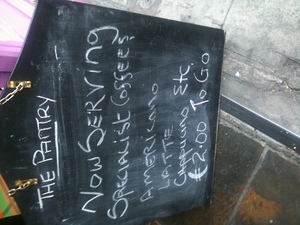 THE PANTRY
NOW SERVING
SPECIALIST COFFEES
AMERICANO
LATTE
CAPPUCINO ETC
€2.00 TO GO